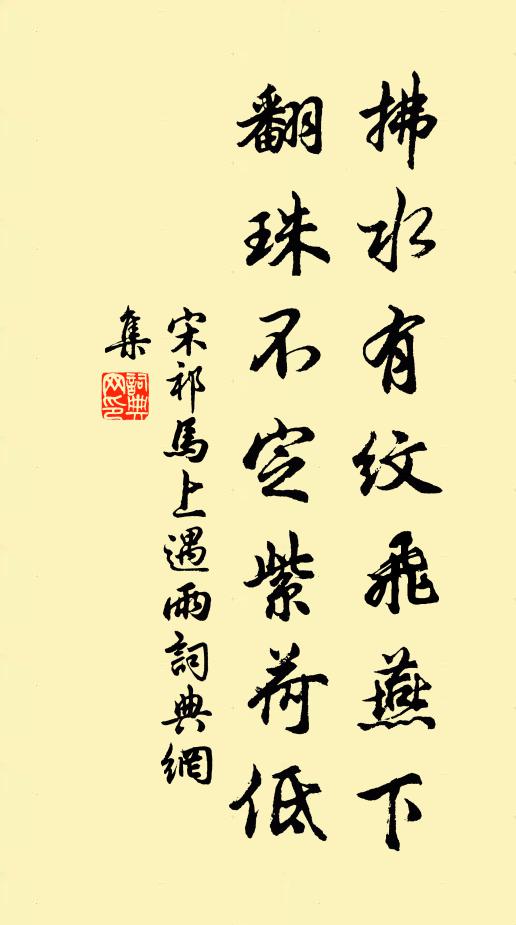 拂水有紋飛燕下
翻珠不定紫荷低
宋祁馬上遇雨詞典網
集
詞典
网印